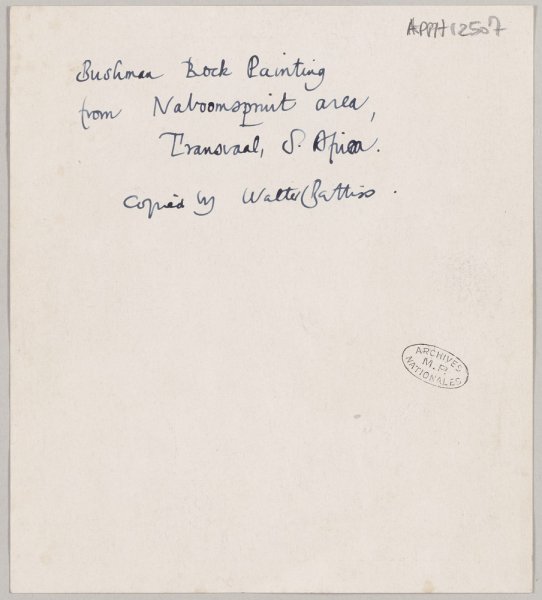 APPH12507
Bushman Rock Painting
from Naboomspruit area,
Transvaal, S. Africa.
Copied by Walter Battiss.
ARCHIVES
M.P.
NATIONALES